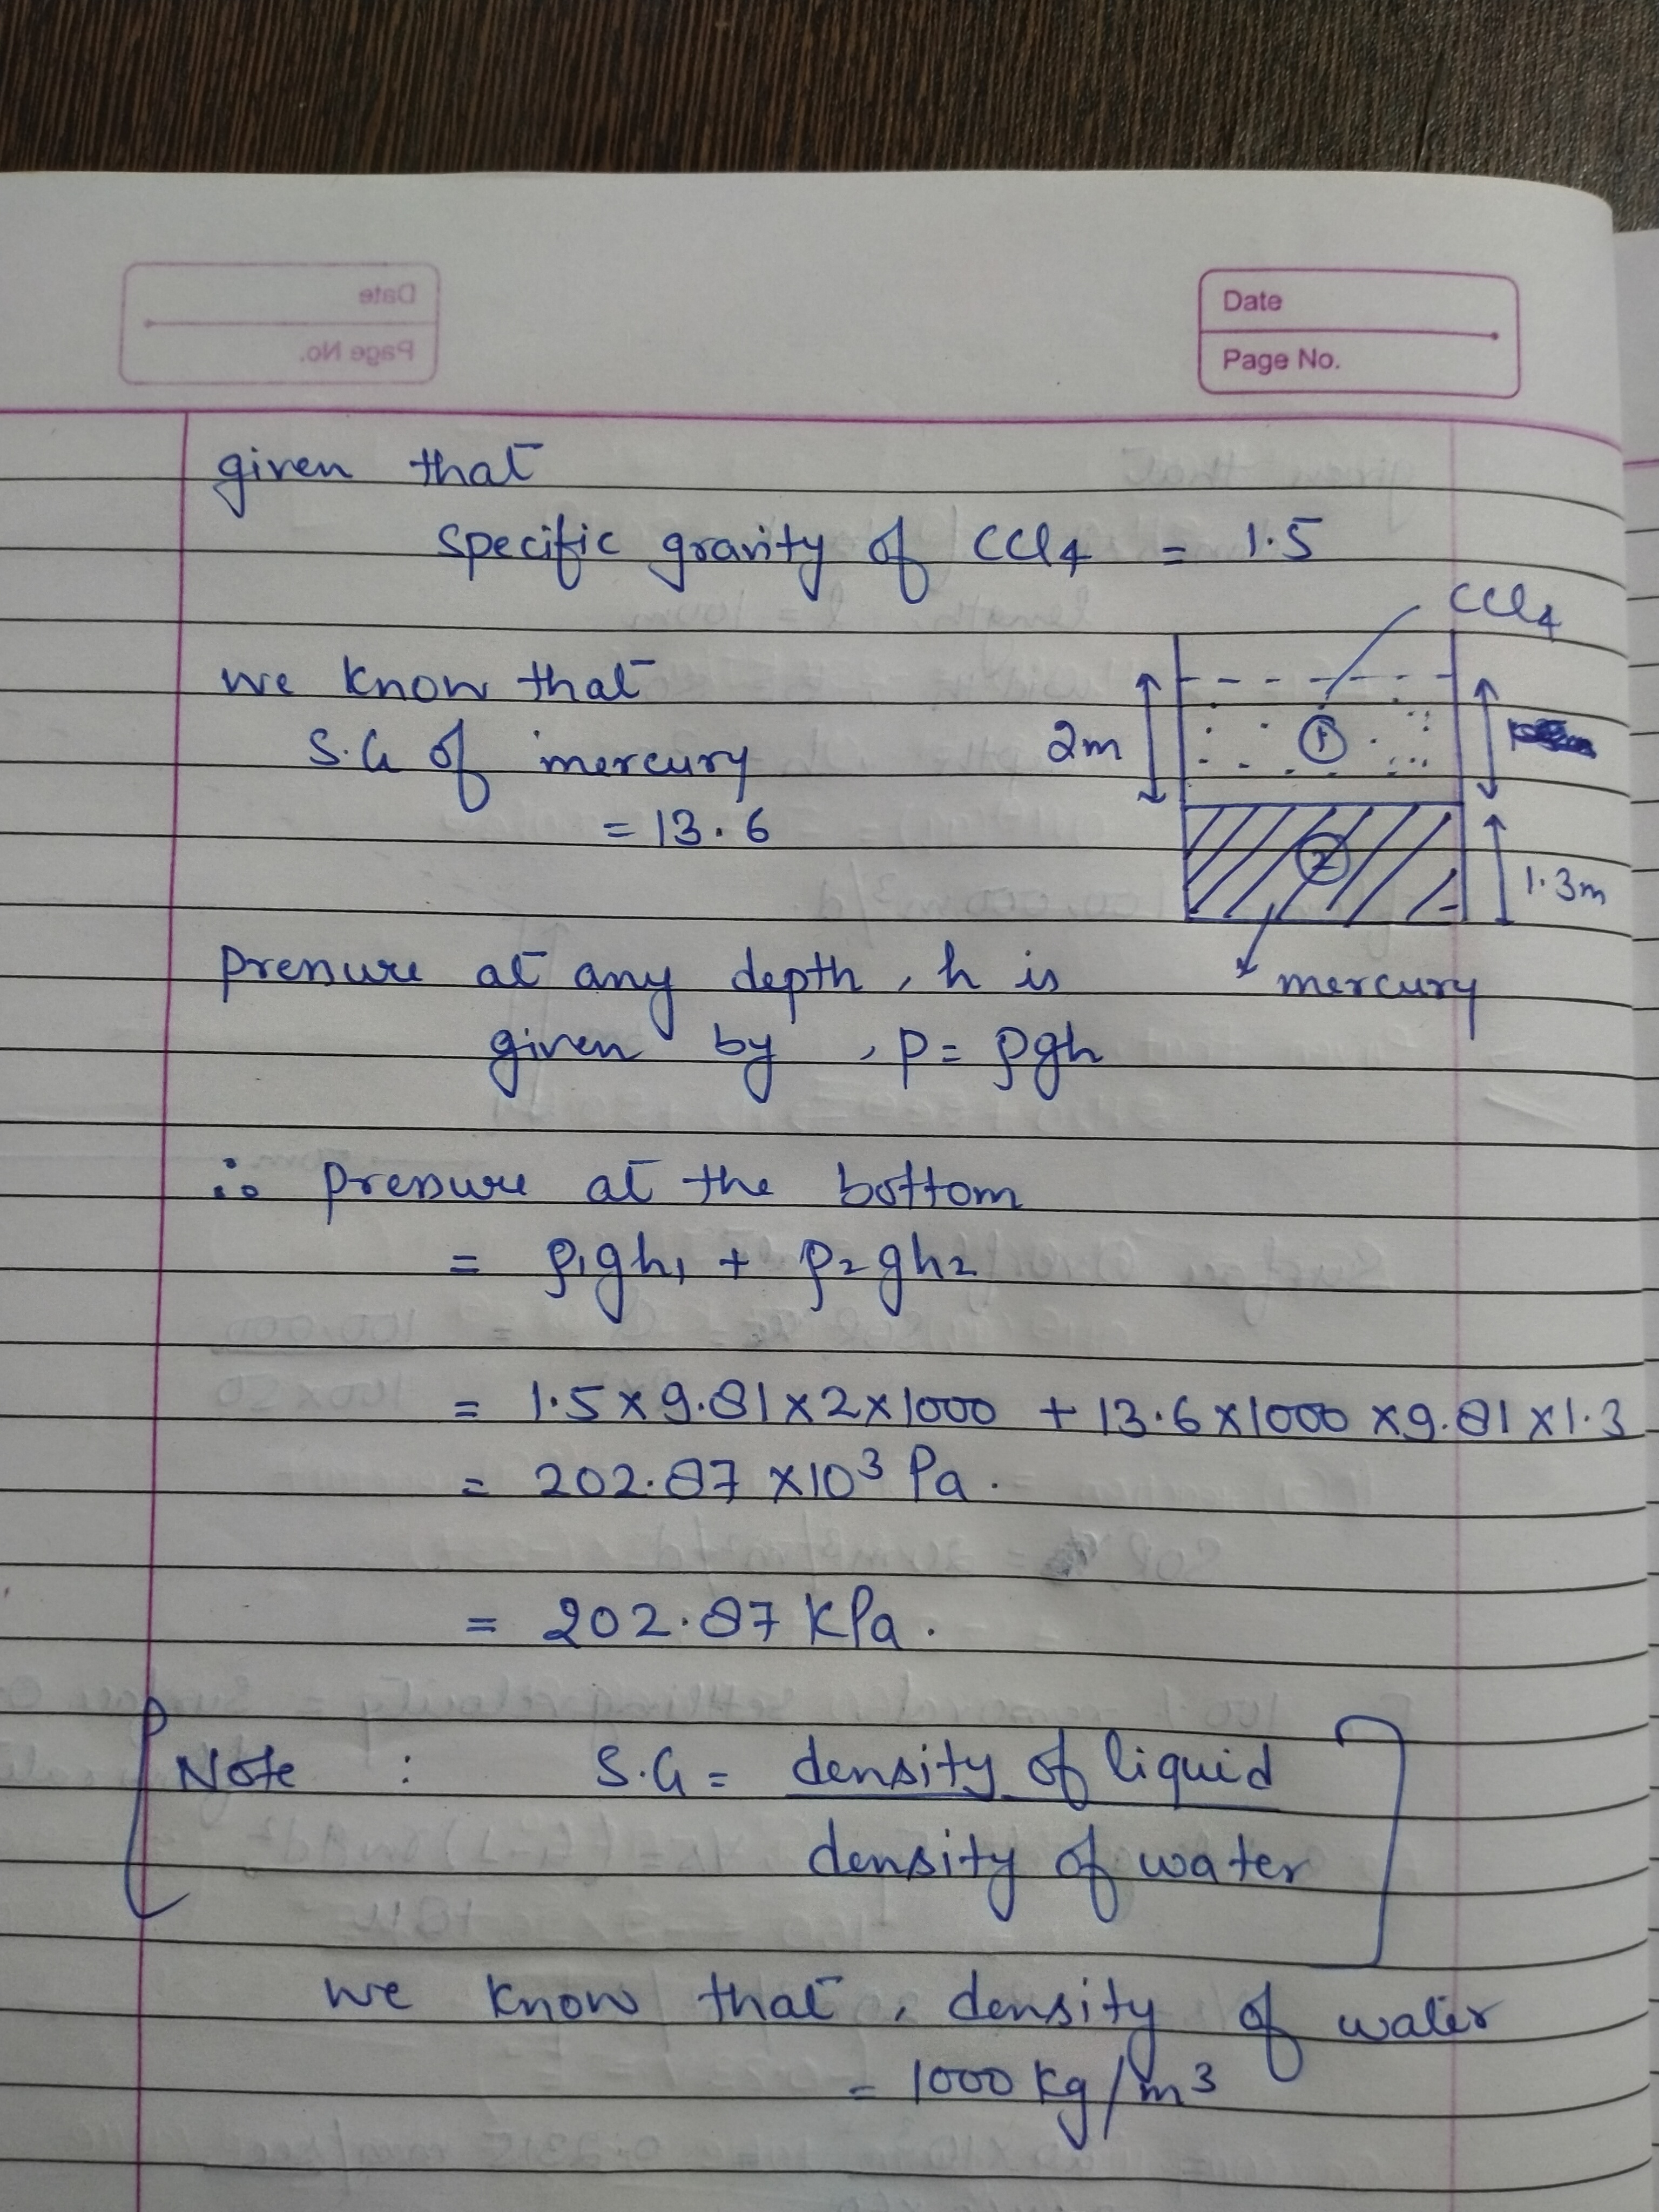 Date
Page No.
given that
specific gravity of CCl4 = 1.5
CCl4
we know that
S.G of mercury
= 13.6
2m
1
2
1.3m
mercury
pressure at any depth, h is
given by, P = ρgh
∴ pressure at the bottom
= ρ1gh1 + ρ2gh2
= 1.5×9.81×2×1000 + 13.6×1000×9.81×1.3
= 202.87 ×10³ Pa.
= 202.87 KPa.
Note : S.G = density of liquid
density of water
we know that, density of water
= 1000 kg/m³